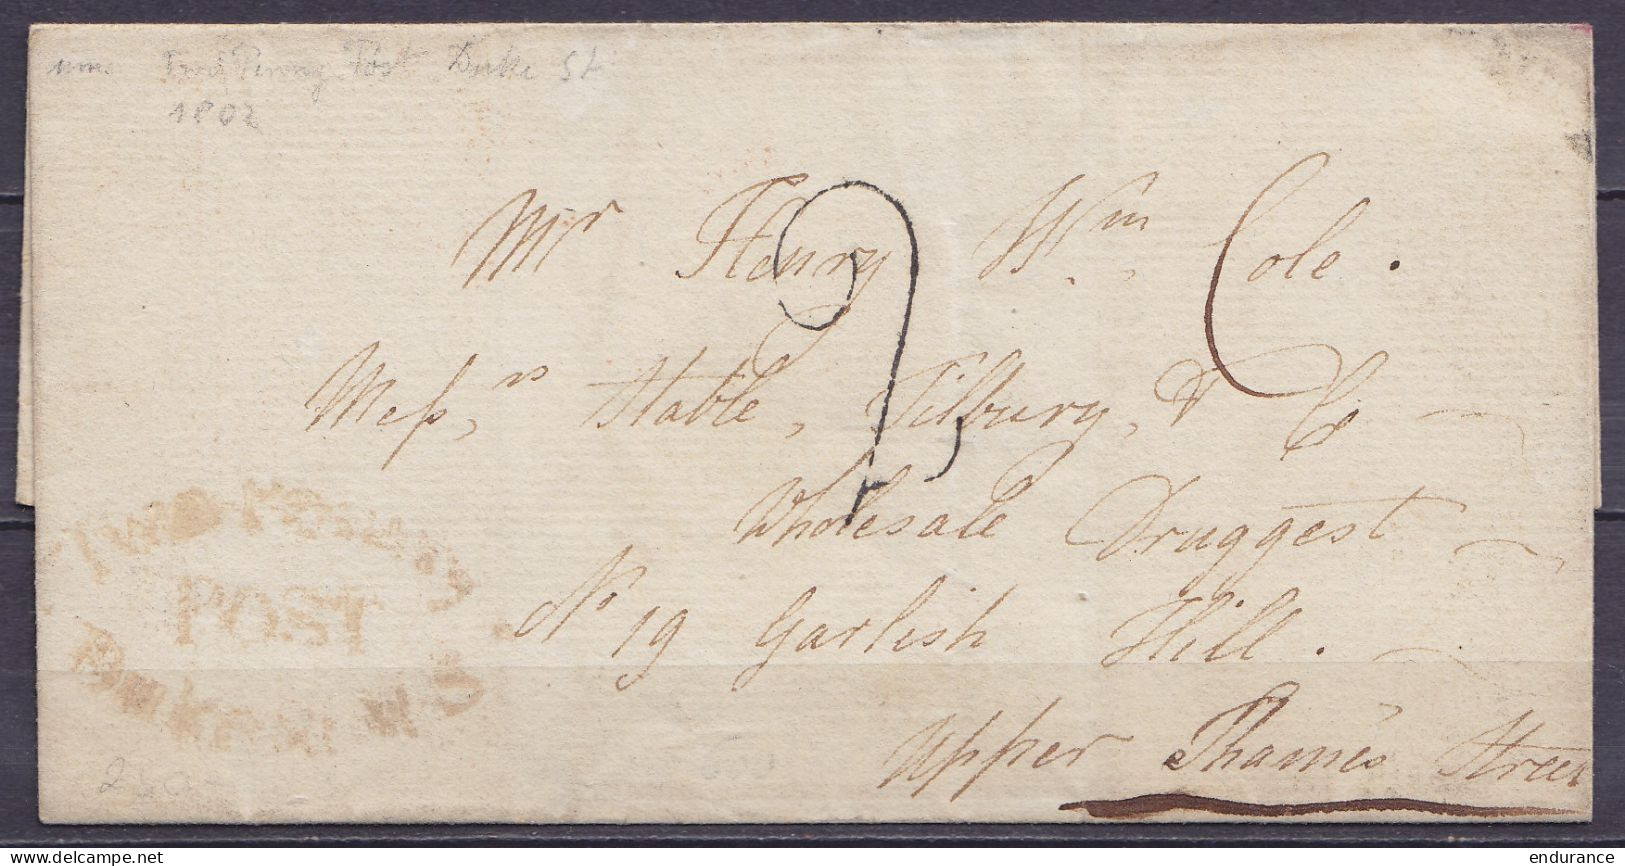 Two Penny Post Duke St
1802
Mr Henry Wm Cole.
Messrs Stable, Tilbury, & Co
Wholesale Druggest
No 19 Garlish Hill.
Upper Thames Street
POST
2
delcampe.net
endurance